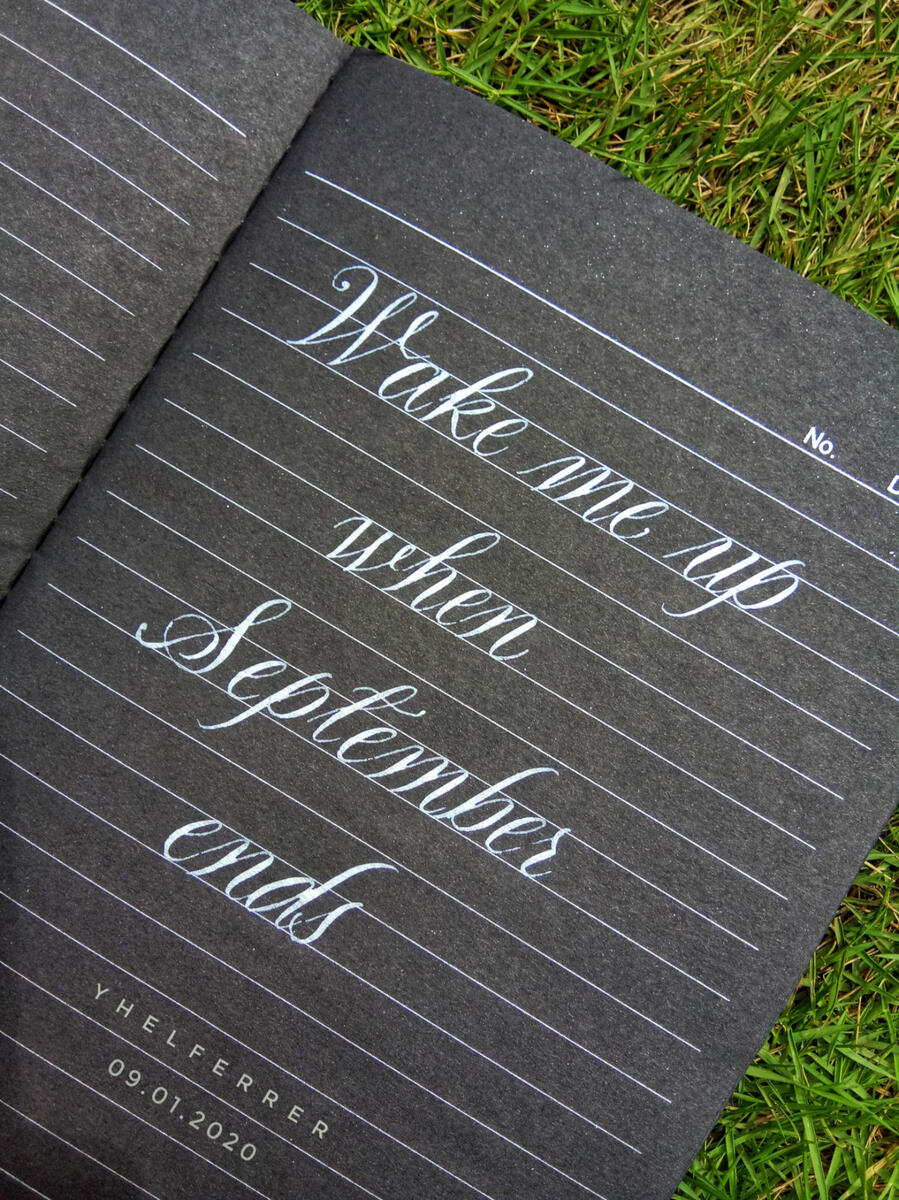 No.
Wake me up
when
September
ends
YHELFERRER
09.01.2020